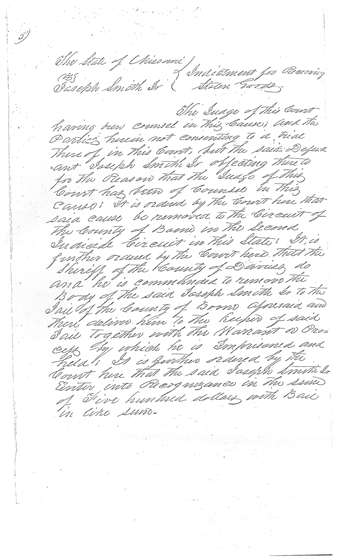 5)
The State of Missouri
vs } Indictment for Receiving
Joseph Smith Jr Stolen Goods,
The Judge of this Court
having been counsel in this Cause, and the
Parties herein not consenting to a trial
thereof in this Court, but the said Defend
ant Joseph Smith Jr objecting thereto
for the Reason that the Judge of this
Court has been of Counsel in this
Cause; It is ordered by the Court here that
said cause be removed to the Circuit of
the County of Boone in the Second
Judicial Circuit in this State; It is
further ordered by the Court here that the
Sheriff of the County of Daviess do
and he is commanded to remove the
Body of the said Joseph Smith Jr to the
Jail of the County of Boone aforesaid and
there deliver him to the keeper of said
Jail together with the Warrant or Pro
cess by which he is Imprisoned and
held; It is further ordered by the
Court here that the said Joseph Smith Jr
Enter into Recognizance in the sum
of Five hundred dollars with Bail
in like sum.